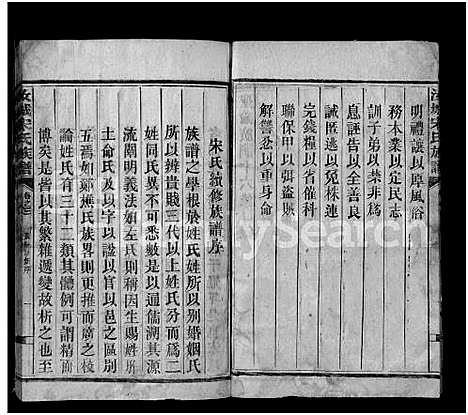 汝城宋氏族譜
明禮讓以厚風俗
務本業以定民志
訓子弟以禁非為
息誣告以全善良
誡匿逃以免株連
完錢糧以省催科
聯保甲以弭盜賊
解讐忿以重身命
宋氏續修族譜序
族譜之學根於姓氏姓所以別婚姻氏
所以辨貴賤三代以上姓氏分而為二
姓同氏異不可勝言所以通儒溯其源
流闡明義法如左氏則以賜姓班
土命氏及以字以諡以官以邑之區別
五焉如鄭樵氏族畧則更推而廣之發
論姓氏有三十二類其體例可謂精而
博矣是皆以其繁雜遞變故析之也至
汝城宋氏族譜